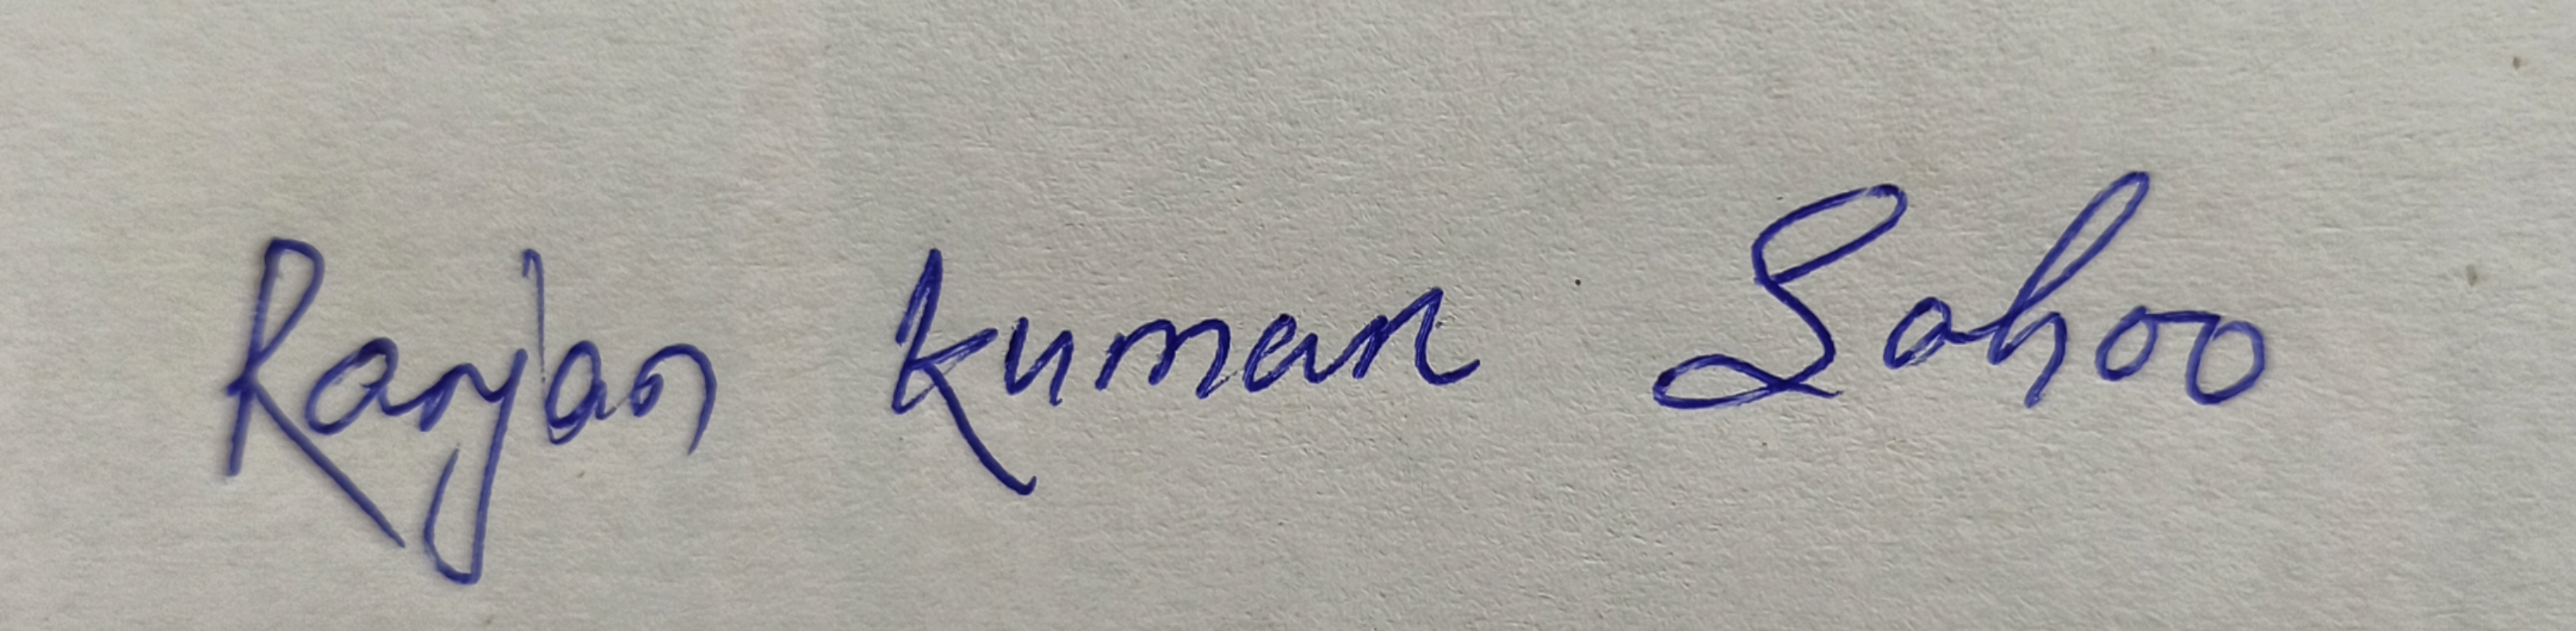 Ranjan Kumar Sahoo